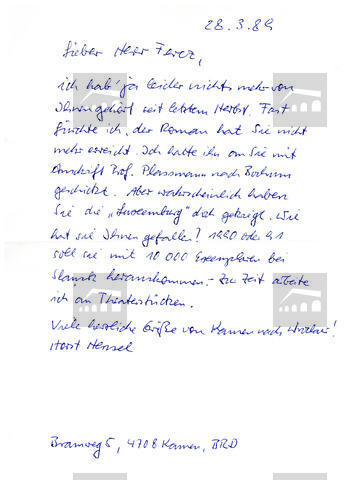 28.3.89
Lieber Herr Ferez,
ich hab' ja leider nichts mehr von
Ihnen gehört seit letztem Herbst. Fast
fürchte ich, der Roman hat Sie nicht
mehr erreicht. Ich hatte ihn an Sie mit
Anschrift Prof. Plassmann nach Bochum
geschickt. Aber wahrscheinlich haben
Sie die „ doch gekriegt. Wie
hat sie Ihnen gefallen? 1990 oder 91
soll sie mit 10 000 Exemplaren bei
herauskommen. – Zur Zeit arbeite
ich an Theaterstücken.
Viele herzliche Grüße von Kamen nach
Horst Hensel
4708 Kamen, BRD